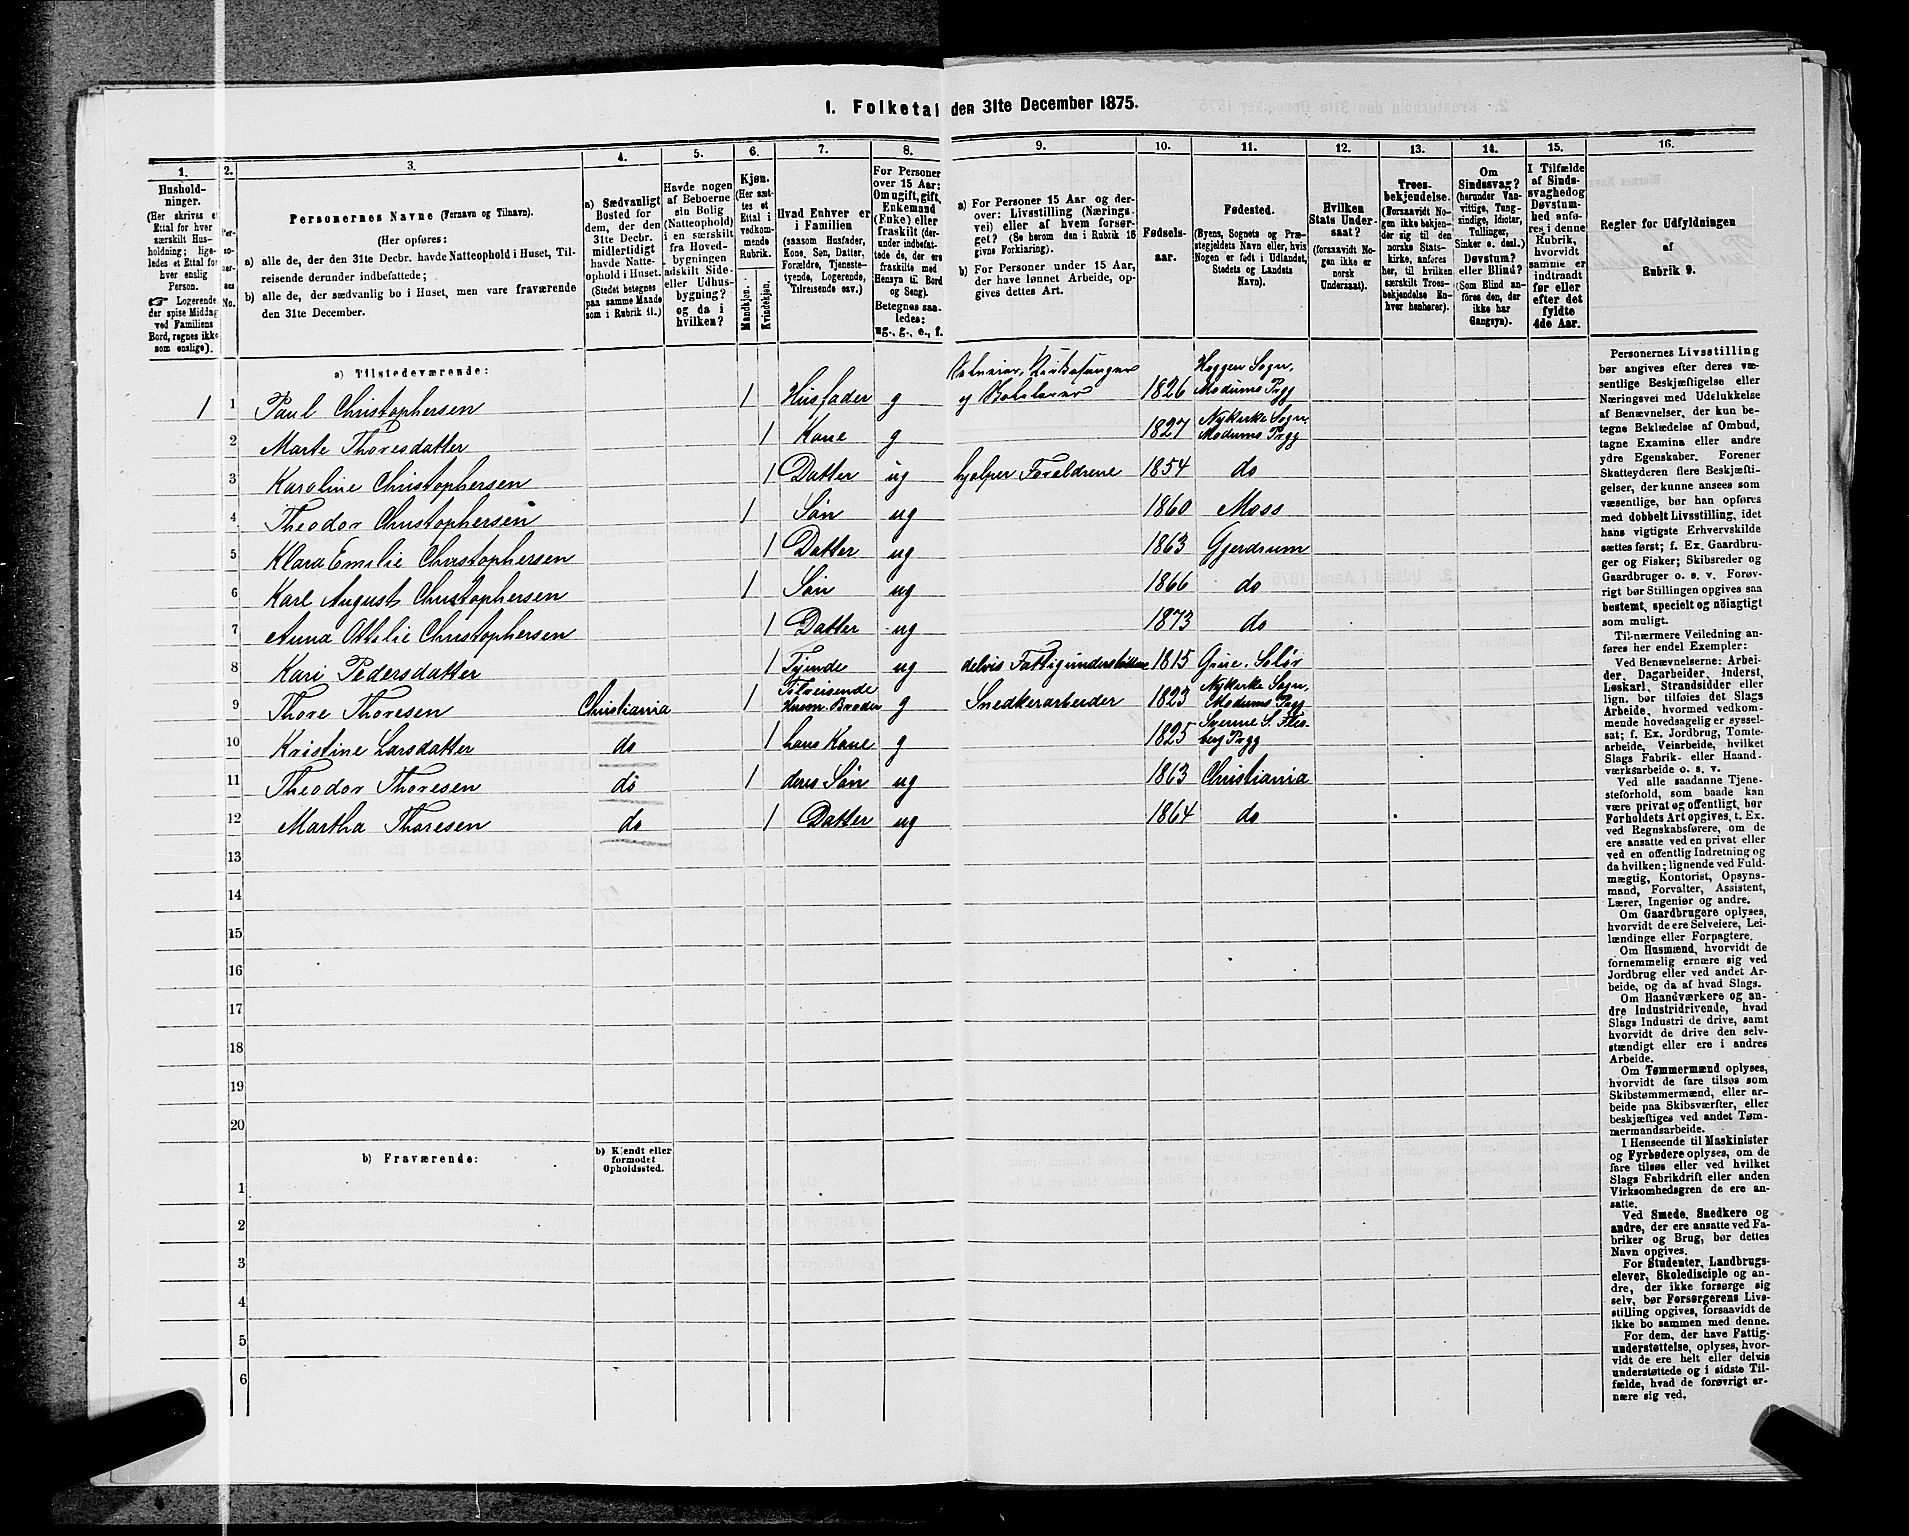 1. Folketal den 31te December 1875.
1.
Hushold-
ninger.
(Her skrives et
Ettal for hver
særskilt Hus-
holdning; lige-
ledes et Ettal for
hver enslig
Person.
☞ Logerende,
der spise Middag
ved Familiens
Bord, regnes ikke
som enslige).
2.
Per-
so-
ner-
nes
No.
3.
Personernes Navne (Fornavn og Tilnavn).
(Her opføres:
a) alle de, der den 31te Decbr. havde Natteophold i Huset, Til-
reisende derunder indbefattede;
b) alle de, der sædvanlig bo i Huset, men vare fraværende
den 31te December.
4.
a) Sædvanligt
Bosted for
dem, der den
31te Decbr.
midlertidigt
havde Natte-
ophold i Huset.
(Stedet betegnes
paa samme Maade
som i Rubrik 11.)
5.
Havde nogen
af Beboerne
sin Bolig
(Natteophold)
i en særskilt
fra Hoved-
bygningen
adskilt Side-
eller Udhus-
bygning?
og da i
hvilken?
6.
Kjøn.
(Her sæt-
tes et
Ettal i
vedkom-
mende
Rubrik.
Mandkjøn.
Kvindekjøn.
7.
Hvad Enhver er
i Familien
(saasom Husfader,
Kone, Søn, Datter,
Forældre, Tjeneste-
tyende, Logerende,
Tilreisende osv.)
8.
For Personer
over 15 Aar:
Om ugift, gift,
Enkemand
(Enke) eller
fraskilt (der-
under indbefat-
tede de, der ere
fraskilte med
Hensyn til Bord
og Seng).
Betegnes saa-
ledes:
ug., g., e., f.
9.
a) For Personer 15 Aar og der-
over: Livsstilling (Nærings-
vei) eller af hvem forsør-
get? (Se herom den i Rubrik 16
givne Forklaring).
b) For Personer under 15 Aar,
der have lønnet Arbeide, op-
gives dettes Art.
10.
Fødsels-
aar.
11.
Fødested.
(Byens, Sognets og Præ-
stegjeldets Navn eller, hvis
Nogen er født i Udlandet,
Stedets og Landets
Navn).
12.
Hvilken
Stats Under-
saat?
(forsaavidt No-
gen ikke er
norsk
Undersaat).
13.
Troes-
bekjendelse.
(Forsaavidt No-
gen ikke bekjen-
der sig til den
norske Stats-
kirke, anføres
her, til hvilken
særskilt Troes-
bekjendelse En-
hver henhører).
14.
Om
Sindssvag?
(herunder Van-
vittige, Tung-
sindige, Idioter,
Tullinger,
Sinker o. desl.)
Døvstum?
eller Blind?
(Som Blind an-
føres den, der
ikke har
Gangsyn).
15.
I Tilfælde
af Sinds-
svaghed og
Døvstum-
hed anfø-
res i denne
Rubrik,
hvorvidt
samme er
indtraadt
før eller
efter det
fyldte
4de Aar.
16.
Regler for Udfyldningen
af
Rubrik 9.
a) Tilstedeværende:
1 1 Paul Christophersen 1 Husfader g Kirkesanger og 1826 Heggen Sogn, Modums Prgj
2 Marte Thoresdatter 1 Kone g 1827 Nykirke Sogn, Modums Prgj
3 Karoline Christophersen 1 Datter ug hjælper Forældrene 1854 do
4 Theodor Christophersen 1 Søn ug 1860 Moss
5 Klara Emilie Christophersen 1 Datter ug 1863 Gjerdrum
6 Karl August Christophersen 1 Søn ug 1866 do
7 Anna Ottilie Christophersen 1 Datter ug 1873 do
8 Kari Pedersdatter 1 Tjende ug delvis Fattigunderstøttet 1815 Grue, Solør
9 Thore Thoresen Christiania 1 Tilreisende Broder g Snedkerarbeider 1823 Nykirke Sogn, Modums Prgj
10 Kristine Larsdatter do 1 hans Kone g 1825 Svenne S. Fles- berg Prgj
11 Theodor Thoresen do 1 deres Søn ug 1863 Christiania
12 Martha Thoresen do 1 Datter ug 1864 do
13
14
15
16
17
18
19
20
b) Fraværende:
b) Kjendt eller
formodet
Opholdssted.
1
2
3
4
5
6
Personernes Livsstilling
bør angives efter deres væ-
sentlige Beskjæftigelse eller
Næringsvei med Udelukkelse
af Benævnelser, der kun be-
tegne Beklædelse af Ombud,
tagne Examina eller andre
ydre Egenskaber. Forener
Skatteyderen flere Beskjæfti-
gelser, der kunne ansees som
væsentlige, bør han opføres
med dobbelt Livsstilling, idet
hans vigtigste Erhvervskilde
sættes først; f. Ex. Gaardbru-
ger og Fisker; Skibsreder og
Gaardbruger o. s. v. Forøv-
rigt bør Stillingen opgives saa
bestemt, specielt og nöiagtigt
som muligt.
Til nærmere Veiledning an-
føres her endel Exempler:
Ved Benævnelserne: Arbei-
der, Dagarbeider, Inderst,
Løskarl, Strandsidder eller
lign. bør tilføies det Slags
Arbeide, hvormed vedkom-
mende hovedsagelig er syssel-
sat; f. Ex. Jordbrug, Tomte-
arbeide, Veiarbeide, hvilket
Slags Fabrik- eller Haand-
værksarbeide o. s. v.
Ved alle saadanne Tjene-
steforhold, som baade kan
være privat og offentligt, bør
Forholdets Art opgives, t. Ex.
ved Regnskabsførere, om de
ere ansatte ved en privat eller
ved en offentlig Indretning og
da hvilken; lignende ved Fuld-
mægtig, Kontorist, Opsyns-
mand, Forvalter, Assistent,
Lærer, Ingeniør og andre.
Om Gaardbrugere oplyses,
hvorvidt de ere Selveiere, Lei-
lændinge eller Forpagtere.
Om Husmænd, hvorvidt de
fornemmelig ernære sig ved
Jordbrug eller ved andet Ar-
beide, og da af hvad Slags.
Om Haandværkere og an-
dre Industridrivende, hvad
Slags Industri de drive, samt
hvorvidt de drive den selv-
stændigt eller ere i andres
Arbeide.
Om Tømmermænd oplyses,
hvorvidt de fare tilsøs som
Skibstømmermænd, eller ar-
beide paa Skibsværfter, eller
beskjæftiges ved andet Tøm-
mermandsarbeide.
I Henseende til Maskinister
og Fyrbødere oplyses, om de
fare tilsøs eller ved hvilket
Slags Fabrikdrift eller anden
Virksomhedsgren de ere an-
satte.
Ved Smede, Snedkere og
andre, der ere ansatte ved Fa-
briker og Brug, bør dettes
Navn opgives.
For Studenter, Landbrugs-
elever, Skoledisciple og an-
dre, der ikke forsørge sig
selv, bør Forsørgerens Livs-
stilling opgives, forsaavidt de
ikke bo sammen med denne.
For dem, der have Fattig-
understøttelse, oplyses, hvor-
vidt de ere helt eller delvis
understøttede og i sidste Til-
fælde, hvad de forøvrigt er-
nære sig ved.